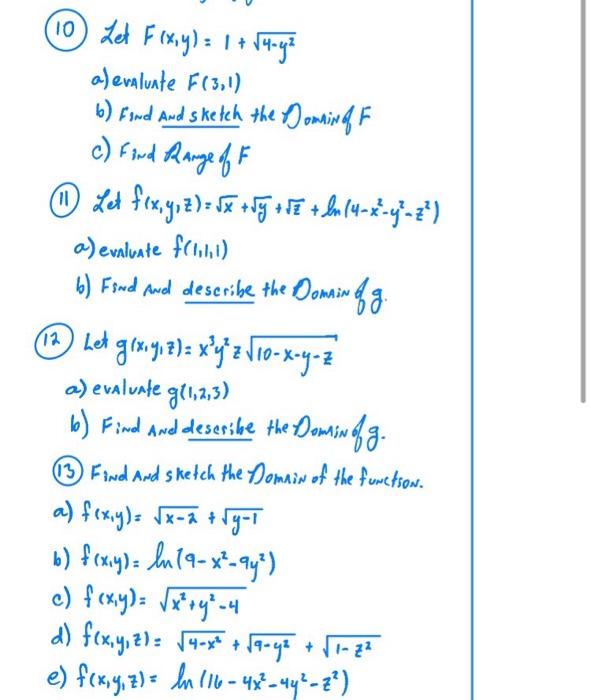 10 Let F(x,y) = 1 + √4-y²
a) evaluate F(3,1)
b) Find And sketch the Domain of F
c) Find Range of F
11 Let f(x,y,z) = √x + √y + √z + ln(4-x²-y²-z²)
a) evaluate f(1,1,1)
b) Find And describe the Domain of g.
12 Let g(x,y,z) = x³y²z √10-x-y-z
a) evaluate g(1,2,3)
b) Find And describe the Domain of g.
13 Find And sketch the Domain of the function.
a) f(x,y) = √x-2 + √y-1
b) f(x,y) = ln(9-x²-9y²)
c) f(x,y) = √x²+y²-4
d) f(x,y,z) = √4-x² + √9-y² + √1-z²
e) f(x,y,z) = ln(16-4x²-4y²-z²)